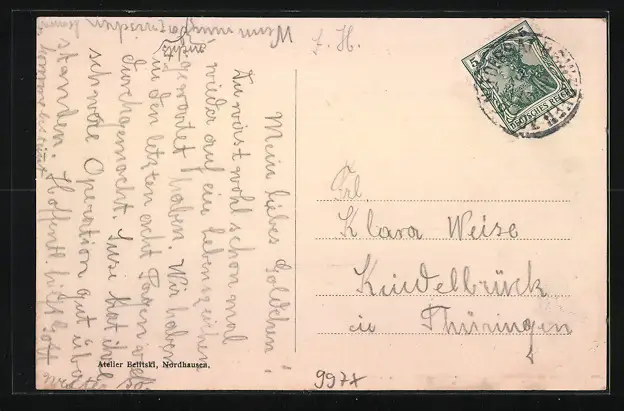 Mein liebes Goldchen!
Du wirst wohl schon mal
wieder auf ein Lebenszeichen
gewartet haben. Wir haben
in den letzten acht Tagen viel
durchgemacht. Susi hat ihre
schwere Operation gut über
standen. Hoffentl. hilft Gott
Wenn
Z. H.
5
DEUTSCHES REICH
Frl.
Klara Weise
Kindelbrück
in Thüringen
Atelier Belitski, Nordhausen.
997x